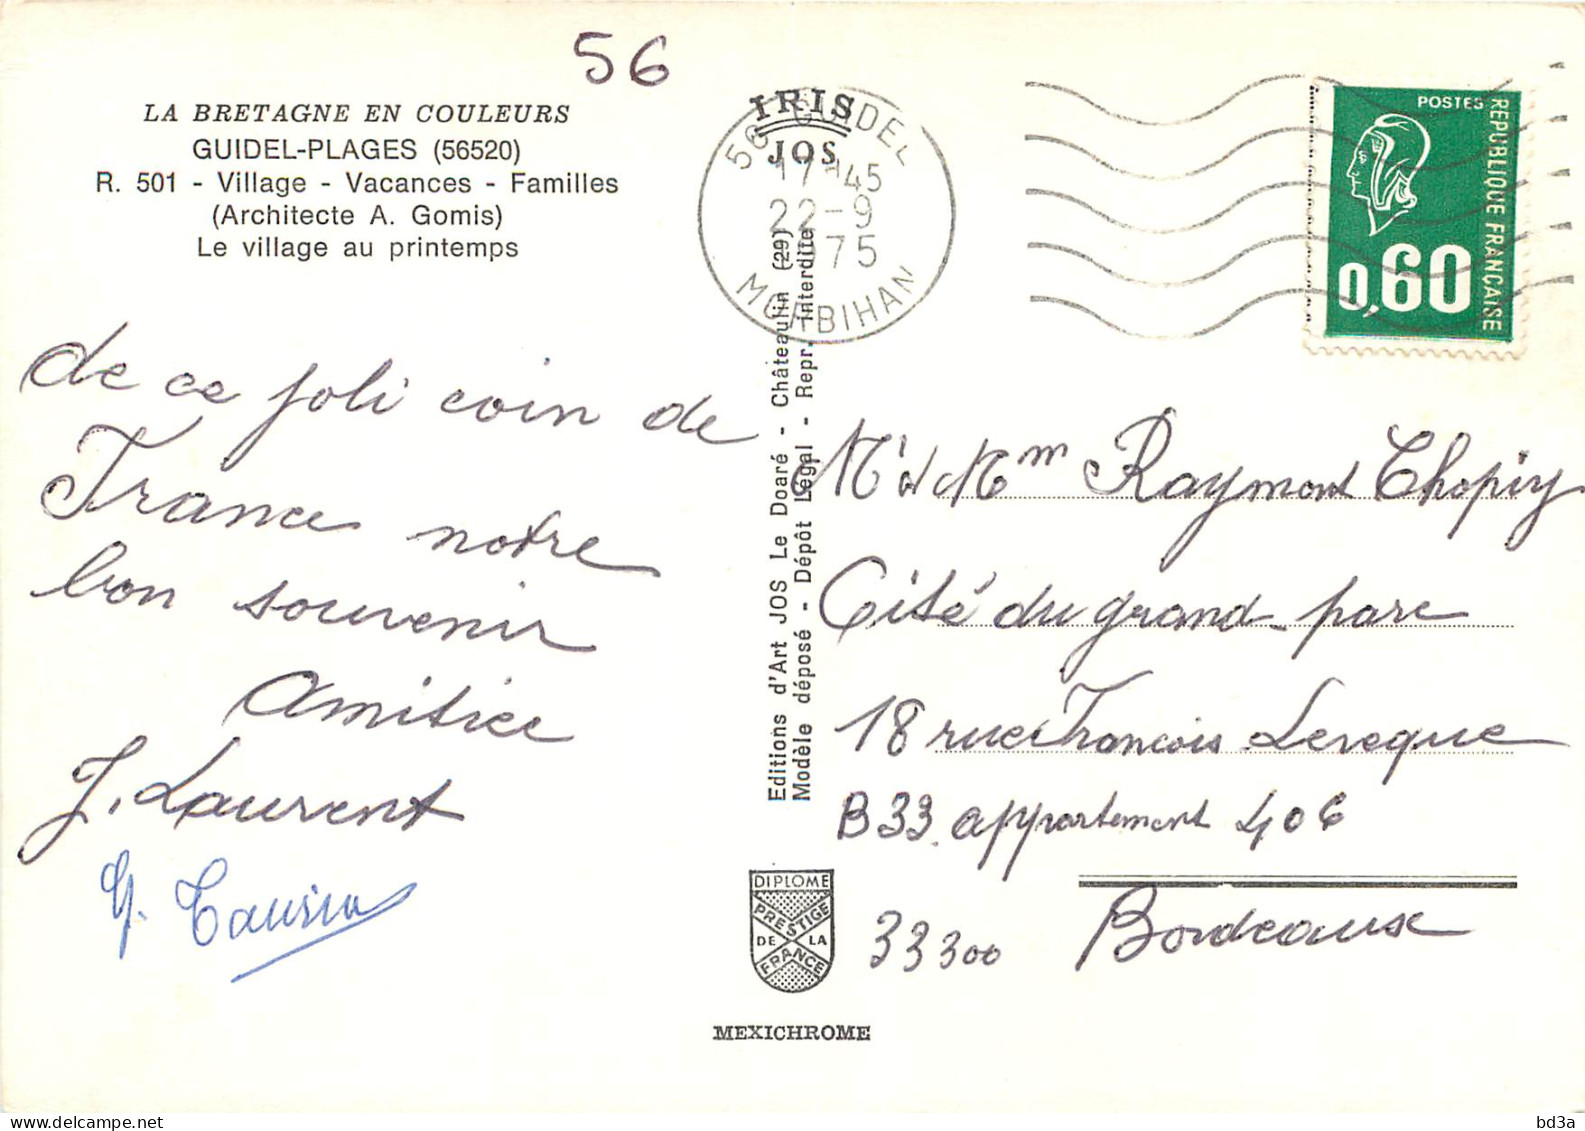 56
LA BRETAGNE EN COULEURS
GUIDEL-PLAGES (56520)
R. 501 - Village - Vacances - Familles
(Architecte A. Gomis)
Le village au printemps
IRIS
JOS
56 GUIDEL
17-45
22-9
1975
MORBIHAN
POSTES
REPUBLIQUE FRANÇAISE
0,60
de ce joli coin de
France notre
bon souvenir
Amitiée
J. Laurent
Editions d'Art JOS Le Doaré - Châteaulin (29)
Modèle déposé - Dépôt Légal - Repr. Interdite
Mr et Mm Raymont Chopiy
Cité du grand-parc
18 rue Francois Leveque
B33 appartement 406
33300 Bordeaux
DIPLOME
PRESTIGE
DE LA
FRANCE
MEXICHROME
delcampe.net
bd3a